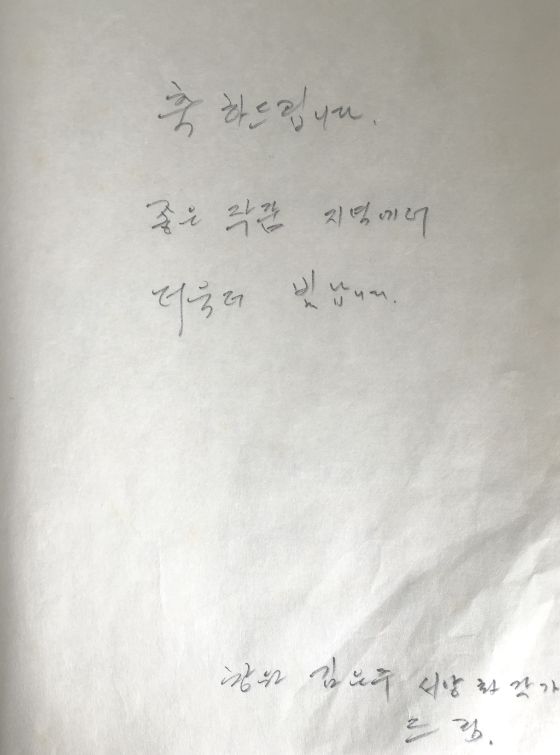 축 하드립니다.
좋은 작품 지역에서
더욱더 빛납니다.
창원 김은주 서양화작가
드림.